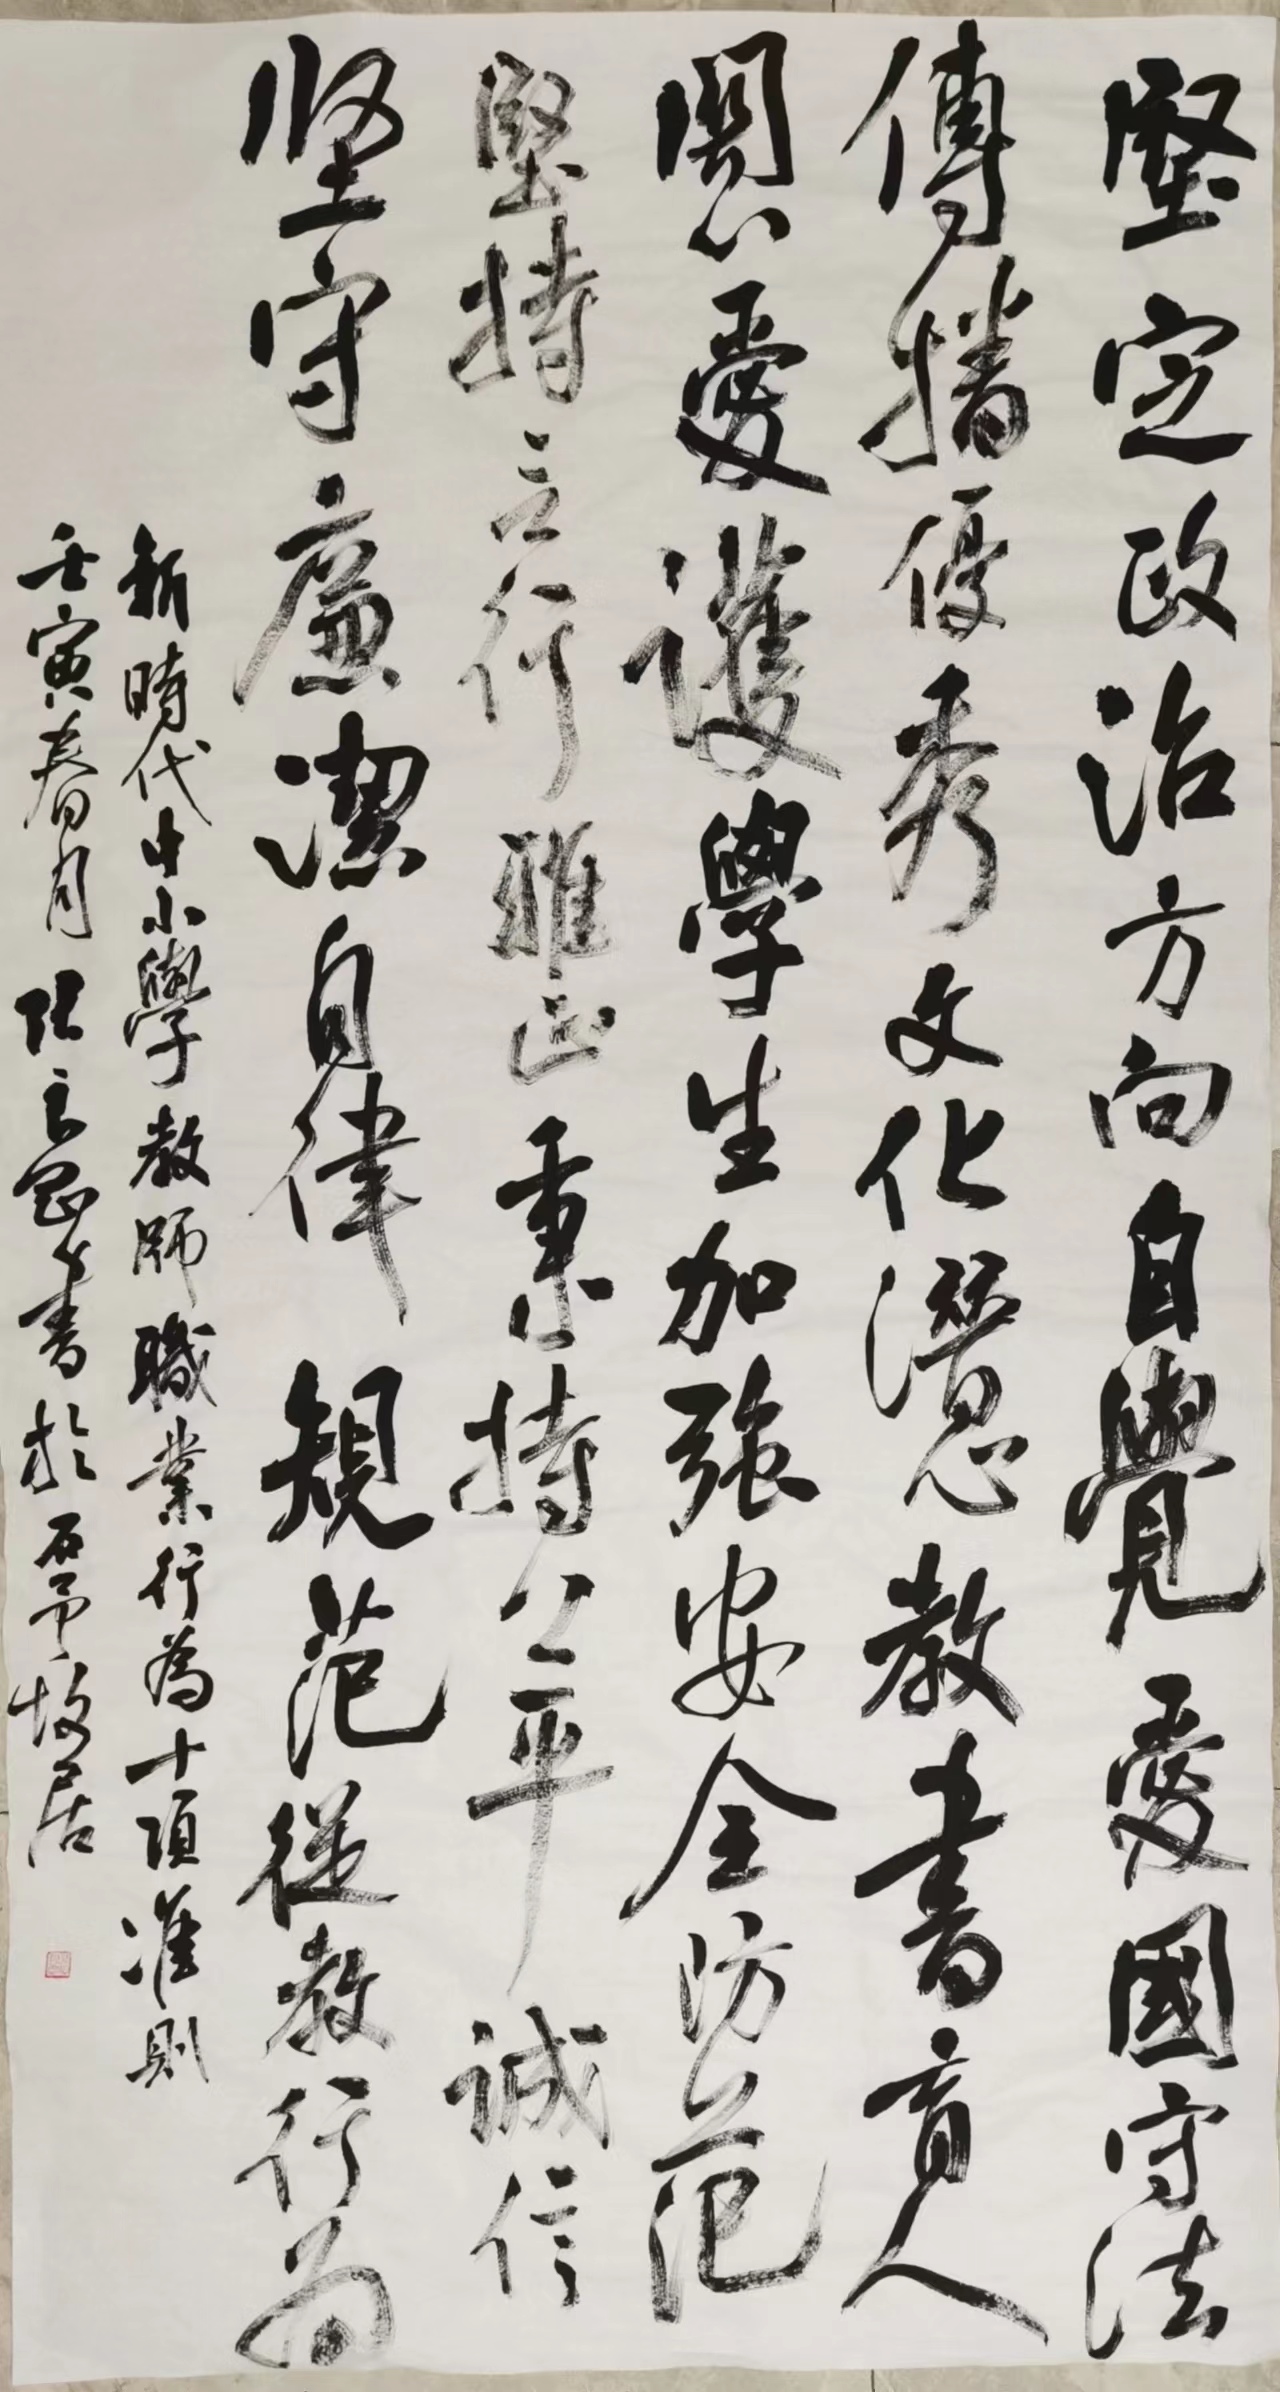 堅定政治方向自覺愛國守法
傳播優秀文化潛心教書育人
關心愛護學生加強安全防范
堅持言行雅正秉持公平誠信
坚守廉潔自律規范從教行为
新時代中小學教師職業行為十項准則
壬寅春月 書於 故居